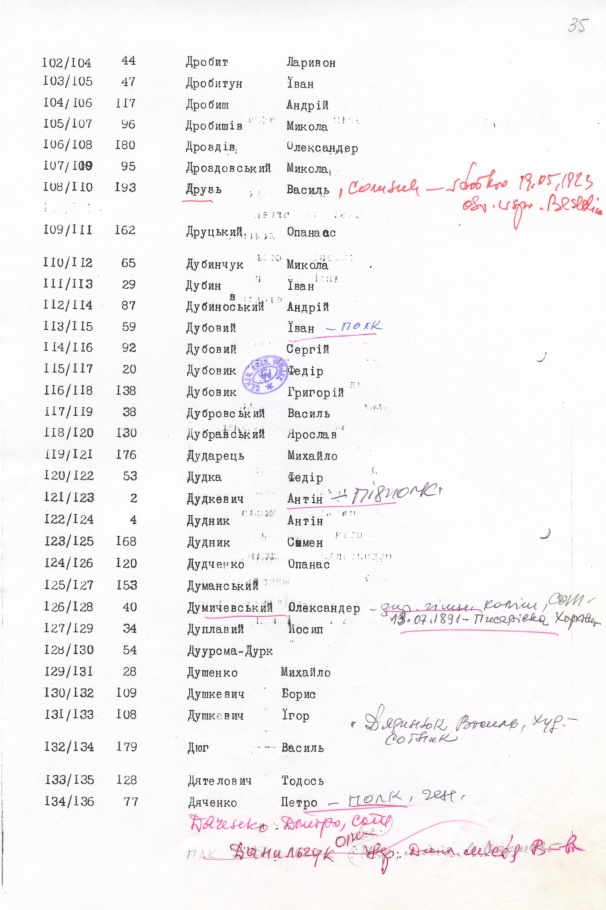 35
I02/I04 44 Дробит Ларивон
I03/I05 47 Дробитун Їван
I04/I06 II7 Дробиш Андрій
I05/I07 96 Дробишів Микола
I06/I08 I80 Дроздів Олександер
I07/I09 95 Дроздовський Микола
I08/II0 I93 Друвь Василь, сотник – 19.05.1923
I09/III I62 Друцький Опанаас
II0/II2 65 Дубинчук Микола
III/II3 29 Дубин Їван
II2/II4 87 Дубиноський Андрій
в
II3/II5 59 Дубовий Їван – полк
II4/II6 92 Дубовий Сергій
II5/II7 20 Дубовик Федір
II6/II8 I38 Дубовик Григорій
II7/II9 38 Дубровський Василь
II8/I20 I30 Дубравський Ярослав
II9/I2I I76 Дударець Михайло
I20/I22 53 Дудка Федір
I2I/I23 2 Дудкевич Антін – Півполк.
I22/I24 4 Дудник Антін
I23/I25 I68 Дудник Семен
I24/I26 I20 Дудченко Опанас
I25/I27 I53 Думанський
I26/I28 40 Думичевський Олександер – сот-
13.07.1891 – Писарівка
I27/I29 34 Дуплавий Йосип
I28/I30 54 Дуурсма-Дурк
I29/I3I 28 Душенко Михайло
I30/I32 I09 Душкевич Борис
I3I/I33 I08 Душкевич Їгор
Василь, худ. –
сотник
I32/I34 I79 Дюг Василь
I33/I35 I28 Дятелович Тодось
I34/I36 77 Дяченко Петро – полк, ген.
Дяченко Дмитро, сот
Данильчук